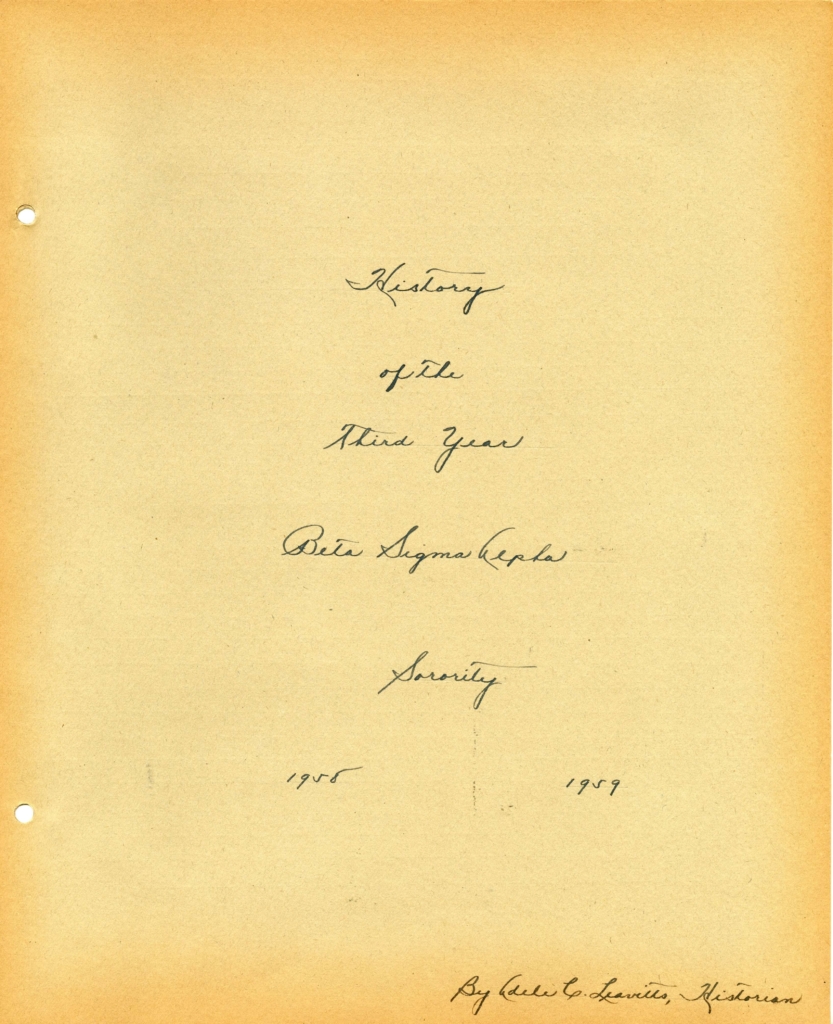 History
of the
Third Year
Beta Sigma Alpha
Sorority
1958 1959
By Adele C. Leavitts, Historian